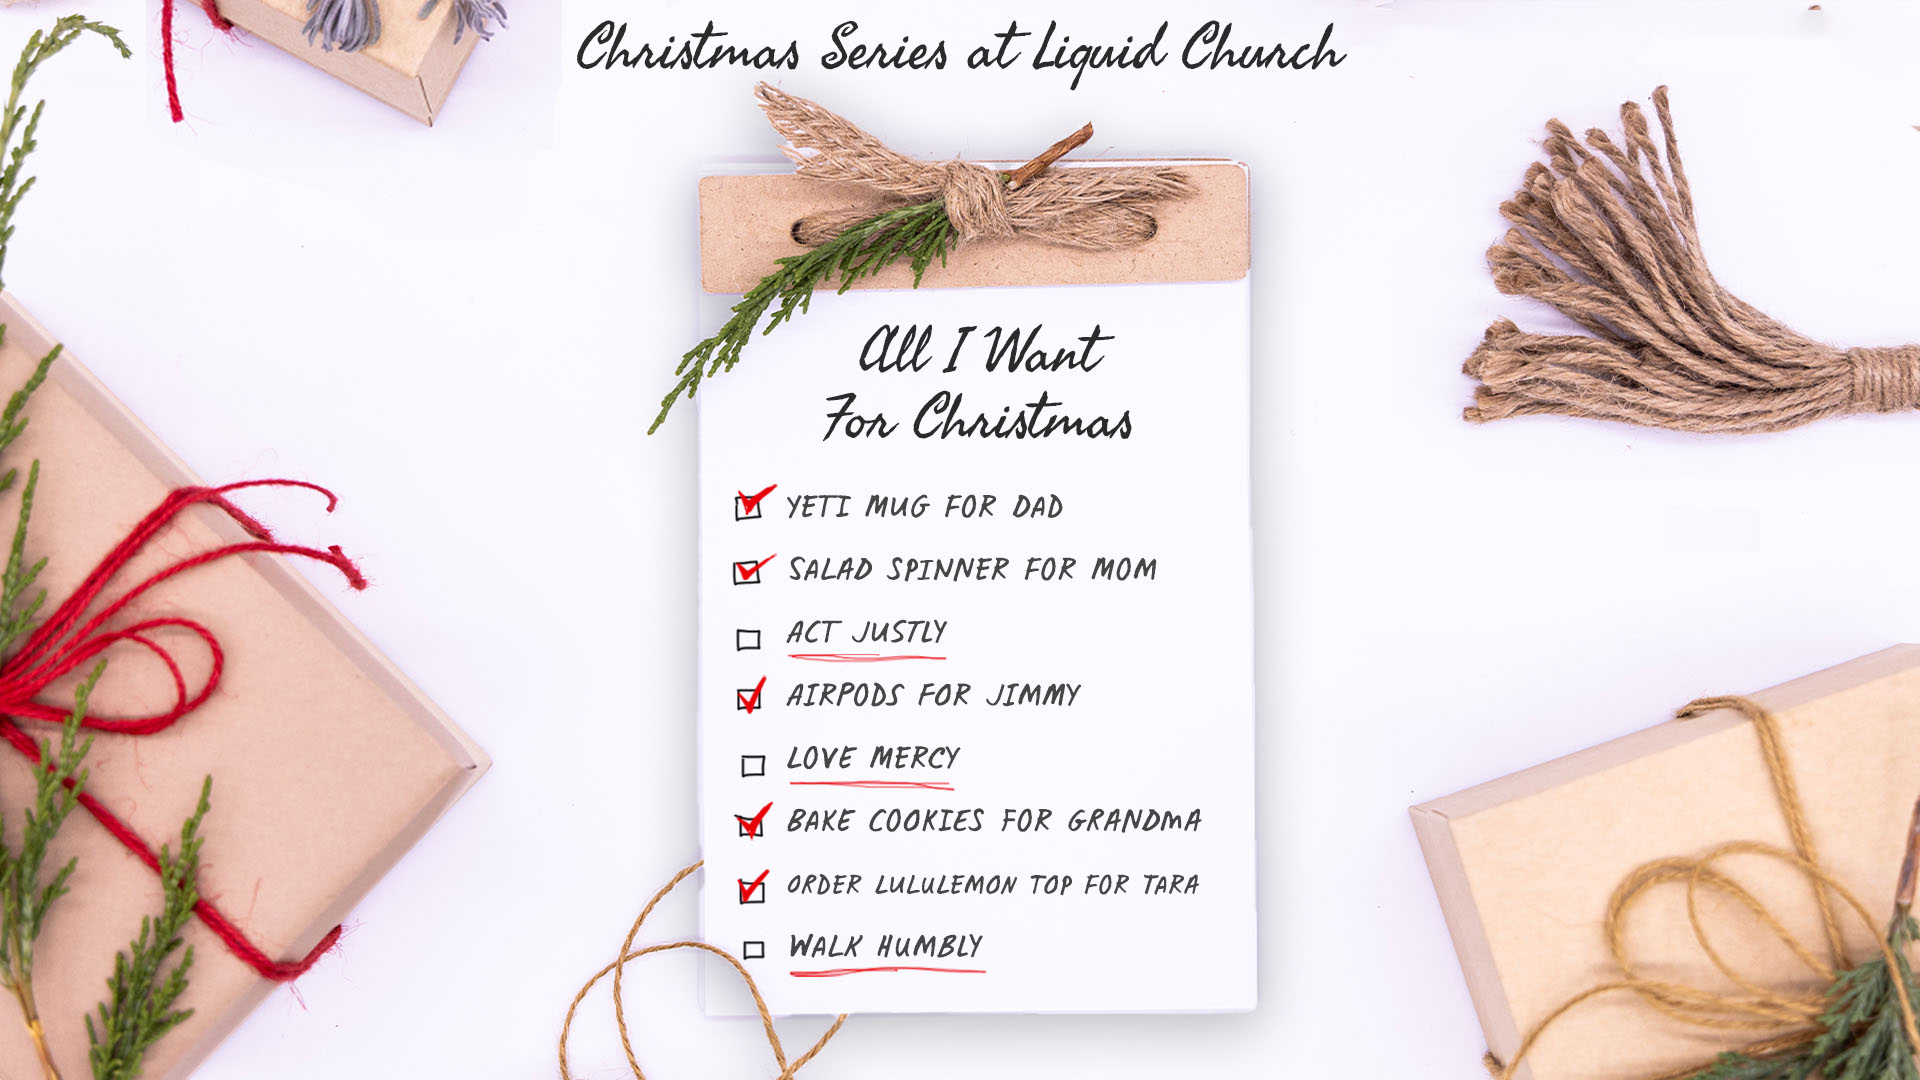 Christmas Series at Liquid Church
All I Want
For Christmas
YETI MUG FOR DAD
SALAD SPINNER FOR MOM
ACT JUSTLY
AIRPODS FOR JIMMY
LOVE MERCY
BAKE COOKIES FOR GRANDMA
ORDER LULULEMON TOP FOR TARA
WALK HUMBLY